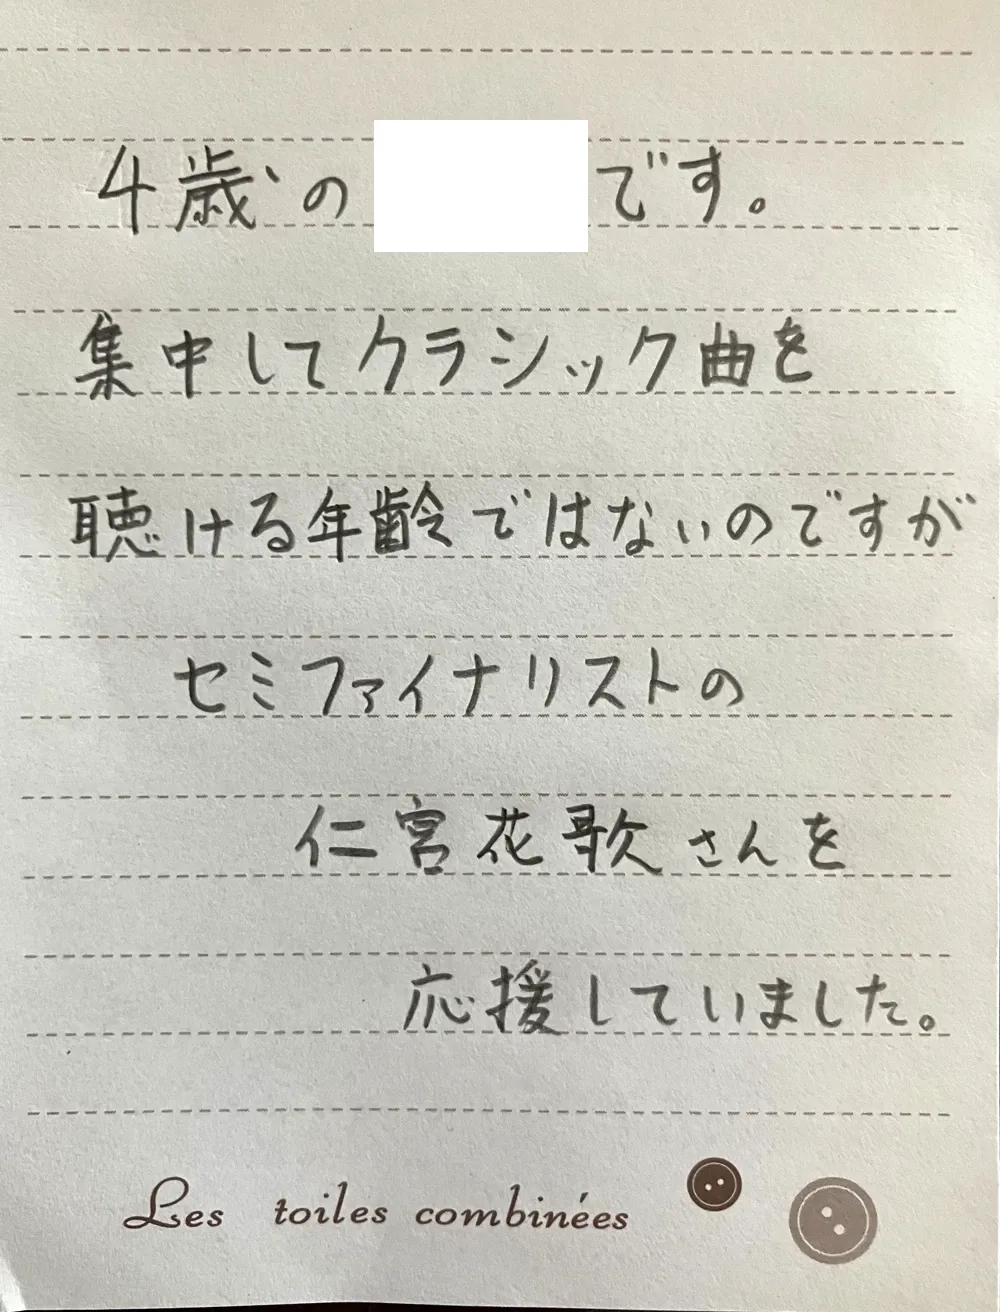 4歳の
です。
集中してクラシック曲を
聴ける年齢ではないのですが
セミファイナリストの
仁宮花歌さんを
応援していました。
Les toiles combinées